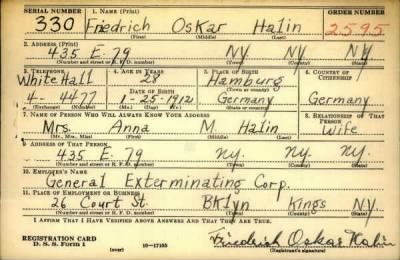 SERIAL NUMBER 1. NAME (Print) ORDER NUMBER
330 Friedrich Oskar Halin 2595
(First) (Middle) (Last)
2. ADDRESS (Print)
435 E. 79 NY NY NY
(Number and street or R. F. D. number) (Town) (County) (State)
3. TELEPHONE 4. AGE IN YEARS 5. PLACE OF BIRTH 6. COUNTRY OF CITIZENSHIP
White Hall 28 Hamburg
DATE OF BIRTH (Town or county)
4-4477 1-25-1912 Germany Germany
(Exchange) (Number) (Mo.) (Day) (Yr.) (State or country)
7. NAME OF PERSON WHO WILL ALWAYS KNOW YOUR ADDRESS 8. RELATIONSHIP OF THAT PERSON
Mrs. Anna M Halin Wife
(Mr., Mrs., Miss) (First) (Middle) (Last)
9. ADDRESS OF THAT PERSON
435 E. 79 NY. NY. NY.
(Number and street or R. F. D. number) (Town) (County) (State)
10. EMPLOYER'S NAME
General Exterminating Corp.
11. PLACE OF EMPLOYMENT OR BUSINESS
26 Court St. Bklyn Kings N.Y.
(Number and street or R. F. D. number) (Town) (County) (State)
I AFFIRM THAT I HAVE VERIFIED ABOVE ANSWERS AND THAT THEY ARE TRUE.
REGISTRATION CARD
D. S. S. Form 1 (over) 16-17105
Friedrich Oskar Halin
(Registrant's signature)